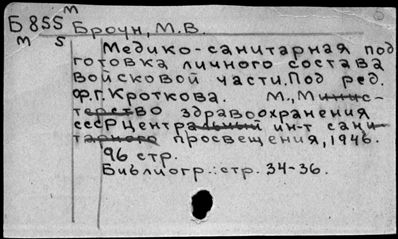 М
Б 855 Броун, М.В.
М 5
Медико-санитарная под
готовка личного состава
войсковой части. Под ред.
Ф.Г. Кроткова. М., Минис-
терство здравоохранения
СССР Центральный ин-т сани
тарного просвещения, 1946.
96 стр.
Библиогр.: стр. 34-36.